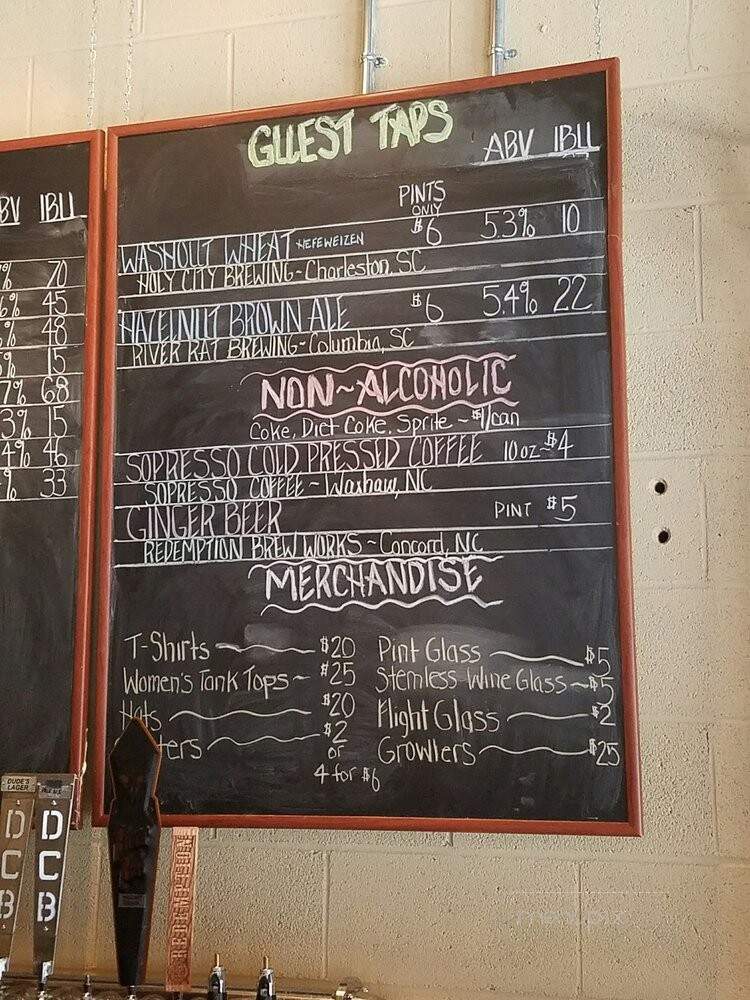 GUEST TAPS
ABV IBU
PINTS
ONLY
WASHOUT WHEAT HEFEWEIZEN $6 5.3% 10
HOLY CITY BREWING~Charleston, SC
HAZELNUT BROWN ALE $6 5.4% 22
RIVER RAT BREWING~Columbia, SC
NON~ALCOHOLIC
Coke, Diet Coke, Sprite ~ $1/can
SOPRESSO COLD PRESSED COFFEE 10oz~$4
SOPRESSO COFFEE ~ Waxhaw, NC
GINGER BEER PINT $5
REDEMPTION BREW WORKS ~ Concord, NC
MERCHANDISE
T-Shirts $20
Women's Tank Tops ~ $25
Hats $20
ters $2
or
4 for $6
Pint Glass $5
Stemless Wine Glass ~ $5
Flight Glass $2
Growlers $25
BV IBU
% 70
6% 45
% 48
% 15
7% 68
3% 15
4% 46
% 33
DUDE'S
LAGER
DCB
DCB
REDEMPTION